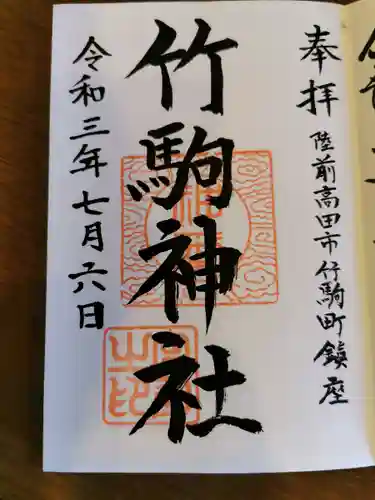 奉拝 陸前高田市竹駒町鎮座
竹駒神社
令和三年七月六日